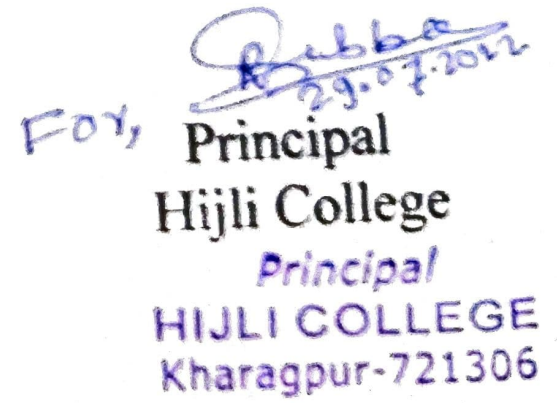 29.07.2022
For,
Principal
Hijli College
Principal
HIJLI COLLEGE
Kharagpur-721306